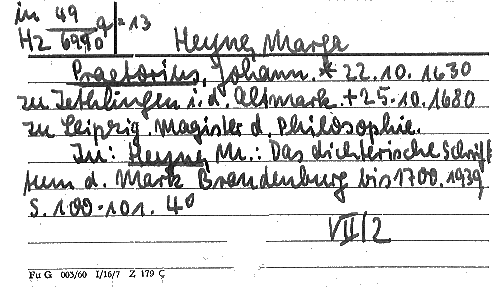 in 49 q = 13
Hz 6990
Heyne, Marga
Praetorius, Johann. * 22.10.1630
zu Zethlingen i. d. Altmark. + 25.10.1680
zu Leipzig. Magister d. Philosophie.
In: Heyne, M.: Das dichterische Schrift
tum d. Mark Brandenburg bis 1700. 1939
S. 100-101. 4°
VII/2
Fu G 003/60 I/16/7 Z 179 C